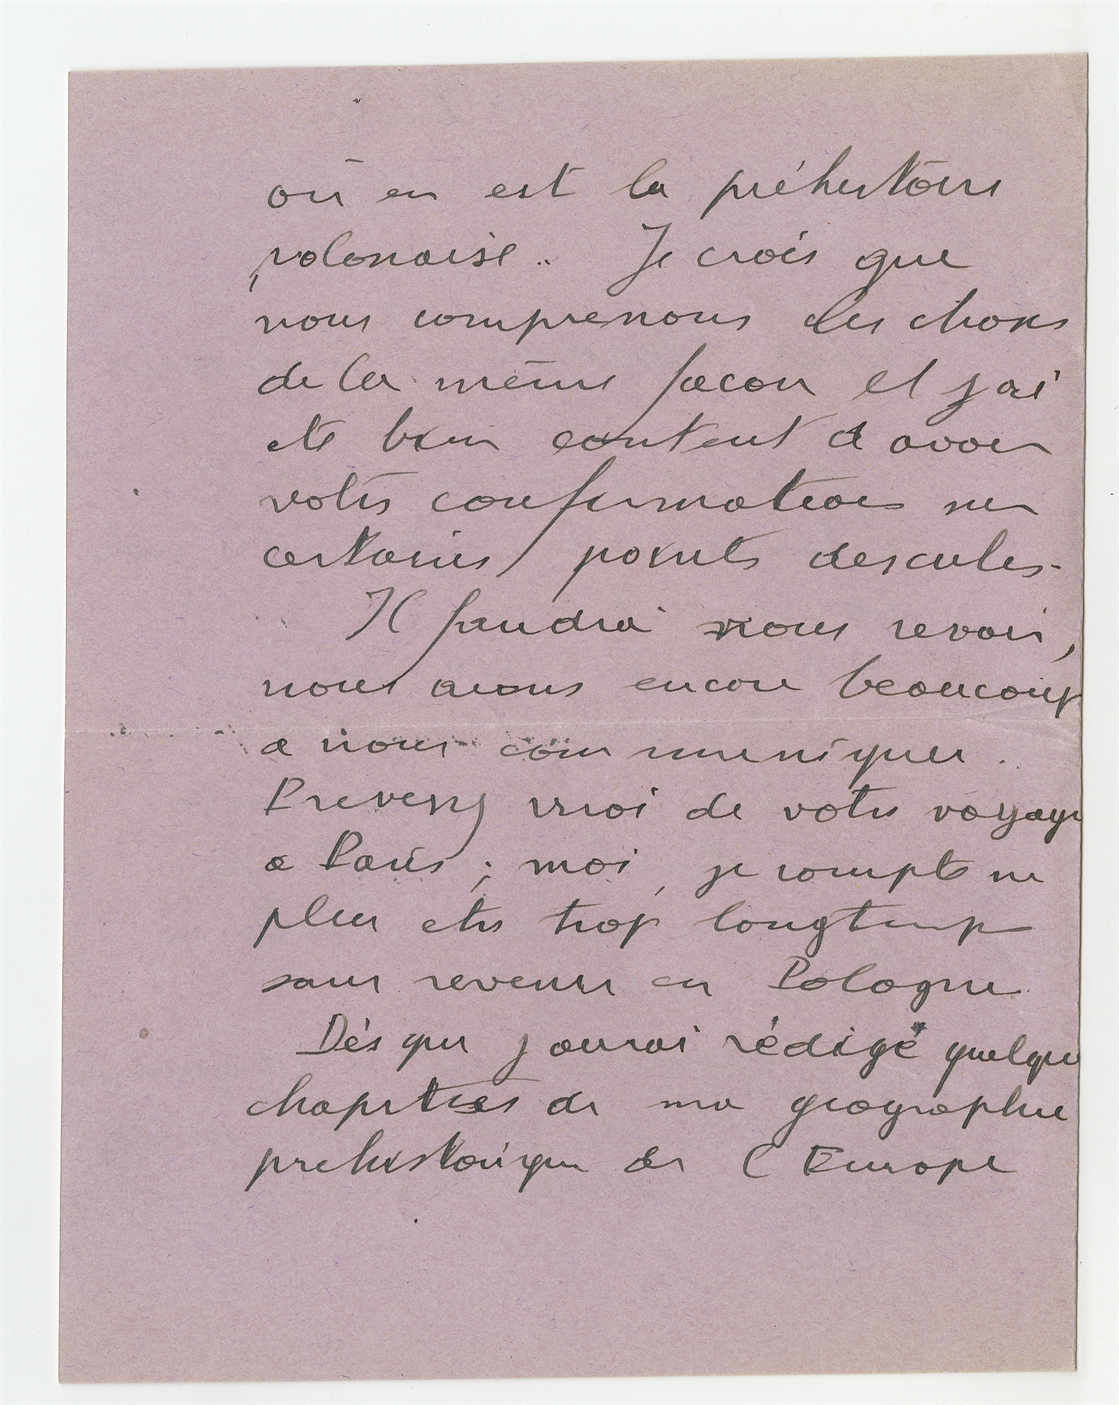 où en est la préhistoire
polonaise.. Je crois que
nous comprenons les choses
de la même facon et j ai
ete bien content d avoir
votre confirmation sur
certains points
Il faudra nous revoir,
nous avons encore beaucoup
a nous communiquer.
Prevenez moi de votre voyage
a Paris; moi, je compte ne
plus etre trop longtemps
sans revenir en Pologne.
Dès que j aurai rédigé quelque
chapitres de ma geographie
prehistorique de l Europe